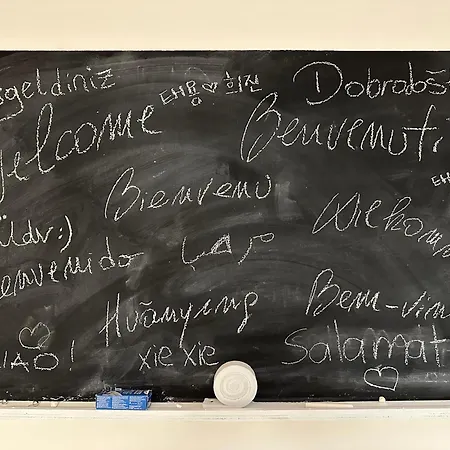 sgeldiniz
태풍♡희진
Dobrodoš
Welcome
Benvenuti
Bienvenu
Üdv:)
Wilkomm
envenido
Huānyíng
Bem-vin
CIAO!
xie xie
Salamat